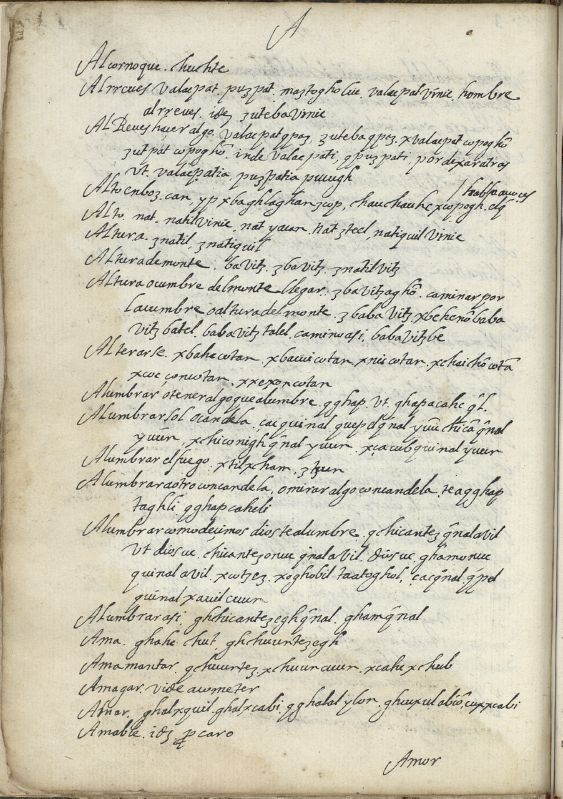 A
Alcornoque. chuhte
Alrreves valacpat. puzpat. maztogholic. valacpat vinic. hombre
alrreves. idez zuteba vinic
Al Reues hacer algo. valacpat qpaz. zuteba qpaz. xvalacpat copoghô
zutpat copoghô. inde valacpati, qpuzpati, por dexar atras
vt. valacpatia puzpatia puugh
Alto enboz. can. yp xbaghlaghan zcop. chauchauhc xcopogh. elq̃
Alto. nat. natil vinic. nat yaur. nat ztecl, natiquil vinic
Altura. znatil, znatiquil
Altura de monte. bavitz, zbavitz, znatil vitz
Altura o cumbre del monte llegar. zbavitzaghô. caminar por
la cumbre o altura del monte. zbaba vitz xbehenô baba
vitz batel, baba vitz talel, camino asi, baba vitz be
Alterarse. xbahc cotan, xbauic cotan, xnic cotan, xchaichô cotã
xcoc con cotan, xxexon cotan
Alumbrar o tener algo que alumbre. qghap. vt. ghapacahc q̃l.
Alumbrar, sol o candela. cacquinal
yuur. xchiconigh q̃nal yuur. xcacub quinal yuur
Alumbrar el fuego. xtil xcham. ztuur
Alumbrar a otro con candela, o mirar algo con candela, teaqghap
taghli qghap caheli
Alumbrar como decimos dios te alumbre. qchicantez q̃nal avil
vt dios uc. chicantezonuc q̃nal avil. dios uc ghamonuc
quinal avil. xcotzez. xoghobil taatoghol. cacq̃nal
quinal xauil cuur
Alumbrar asi. ghchicantezegh q̃nal. gham q̃nal
Ama. ghahc. chut ghchuuntezegh
Ama mantar qchuuntez xchuun cuur. xcahc xchub
Amagar. vide acometer
Amar. ghalxquil. ghalxcabi. qghalal ylon.
Amable. idez p caro
Amor